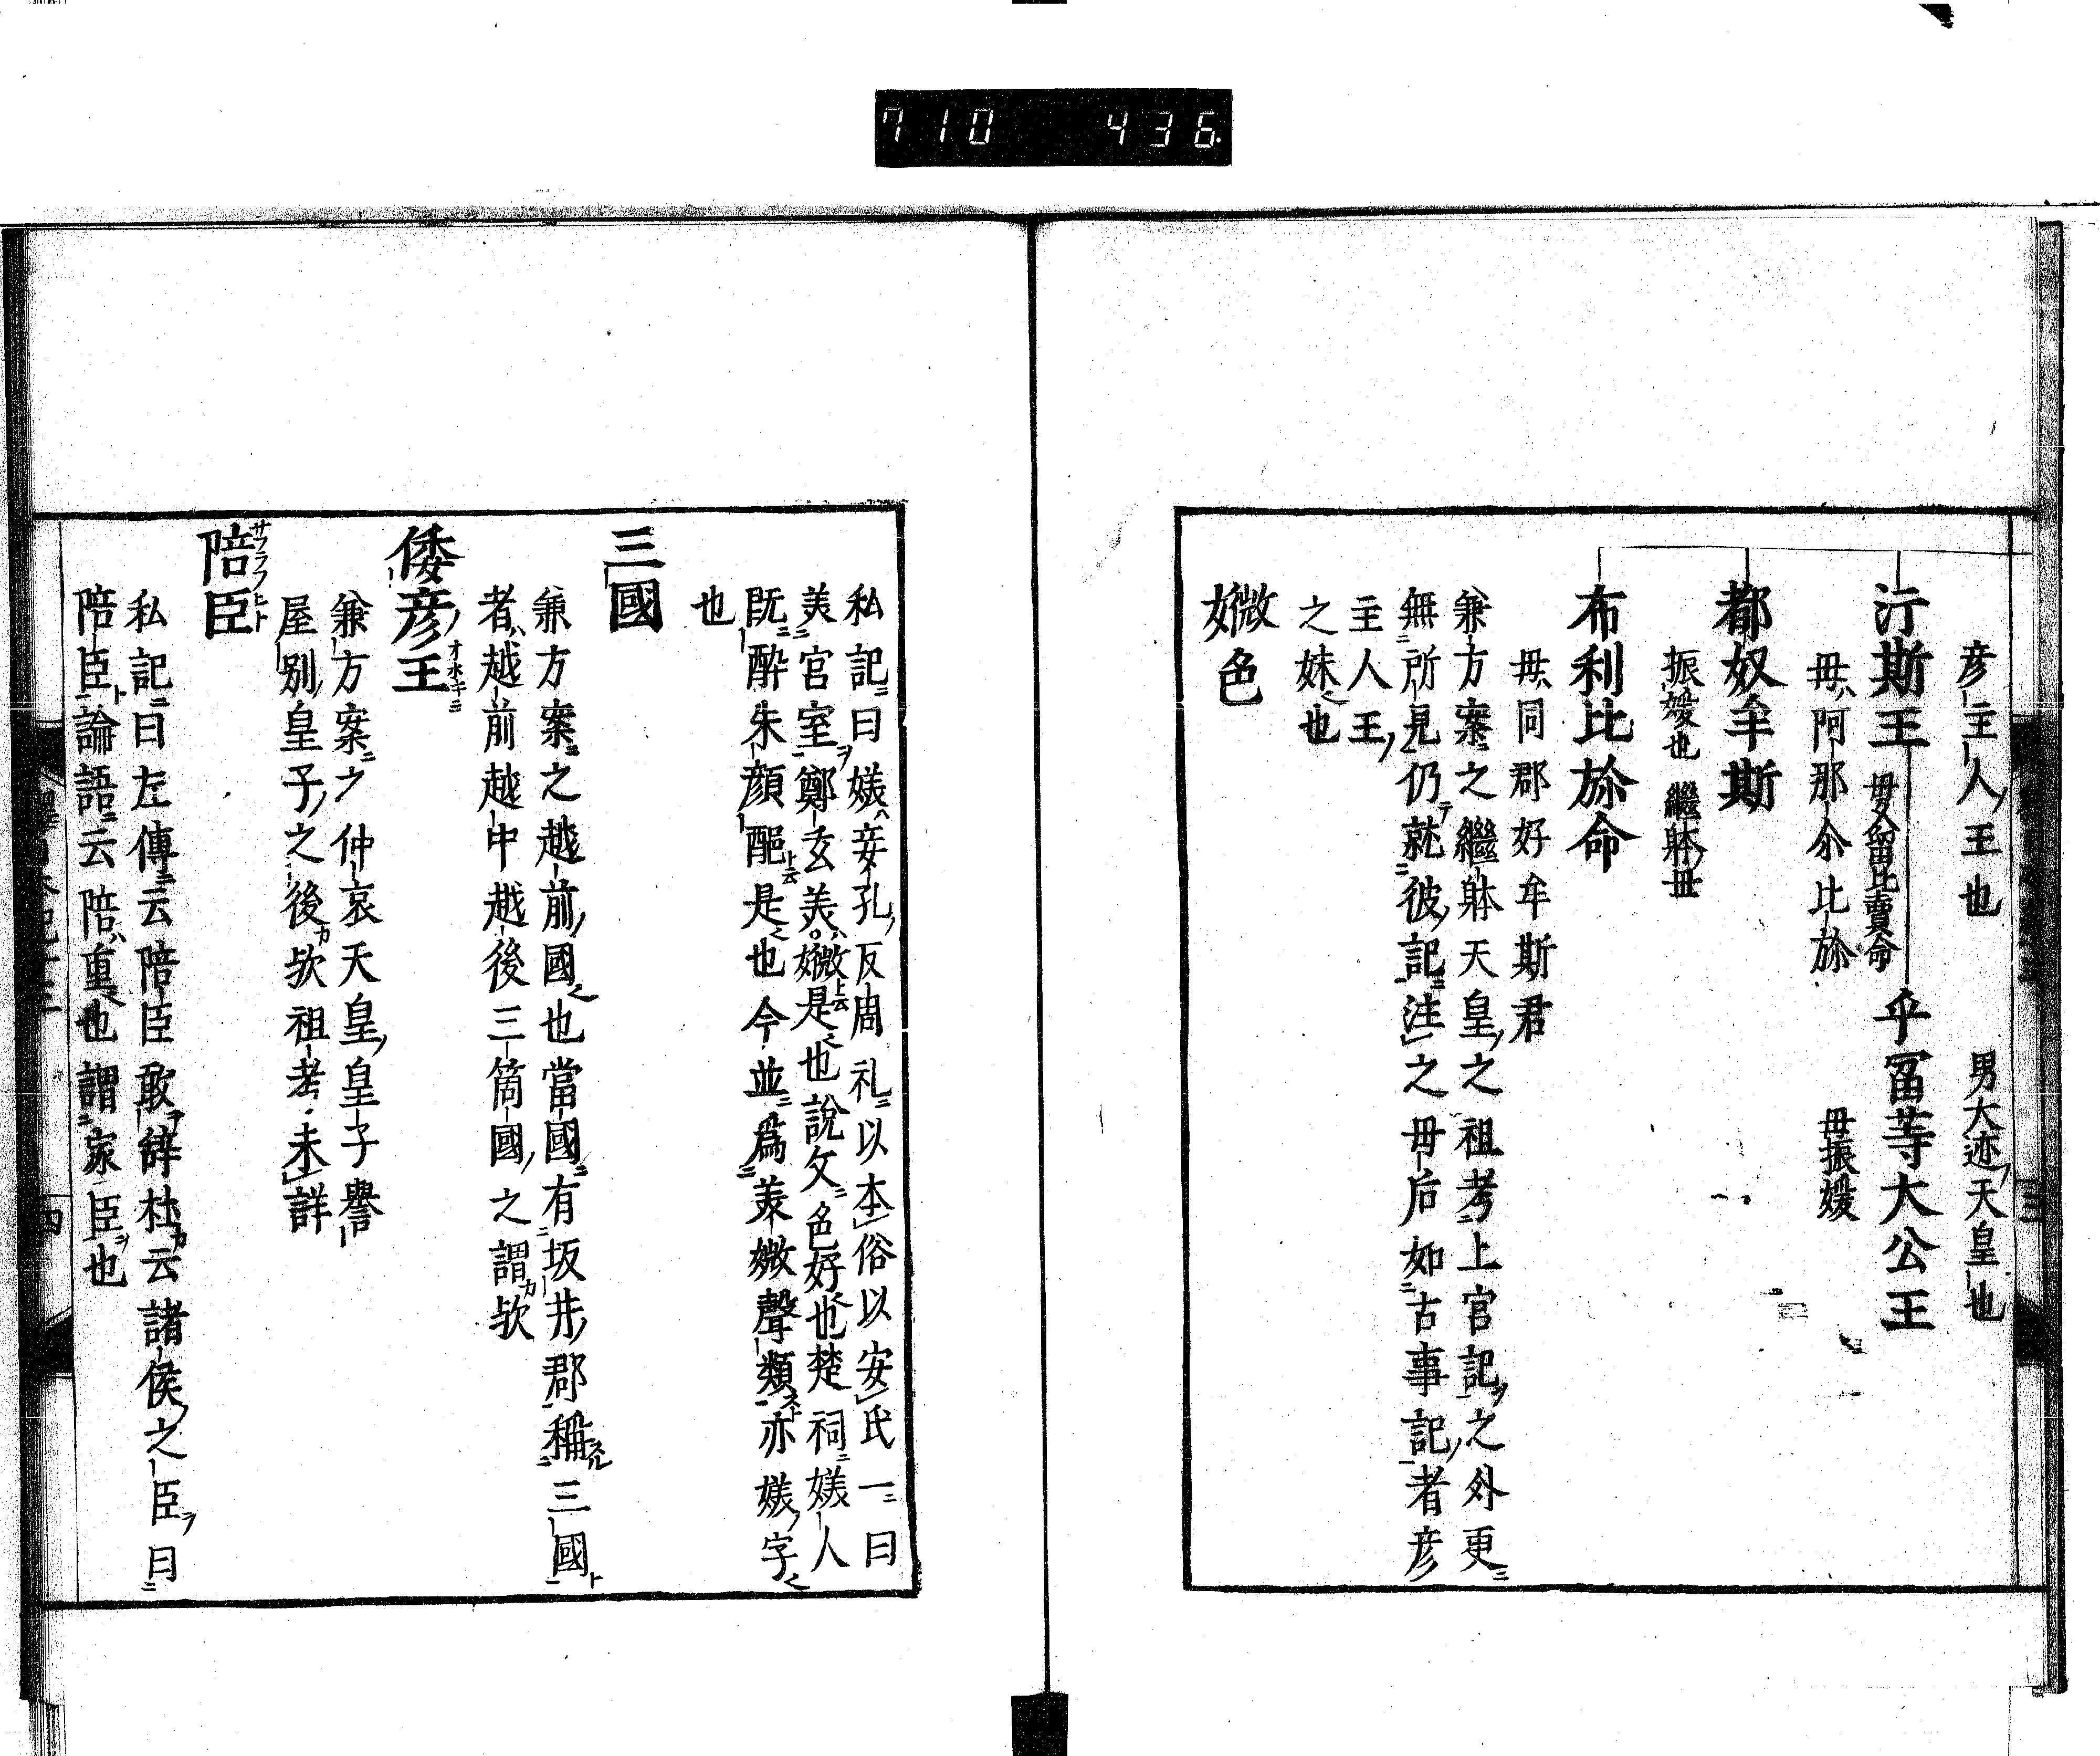 710 436
彦主人王也 男大迹天皇也
汙斯王 母久留比賣命 乎冨等大公王
母阿那尒比弥 母振媛
都奴牟斯
振媛也 繼躰母
布利比弥命
母同郡好牟斯君
兼方案之繼躰天皇之祖考上官記之外更
無所見仍就彼記注之母后如古事記者彦
主人王
之妹也
媺色
私記曰媄妾孔反周礼以本俗以安氏一曰
美宮室鄭玄美媺是也說文色好也楚祠媄人
既醉朱顔酡是也今並爲美媺聲類亦媄字
也
三國
兼方案之越前國也當國有坂井郡稱三國
者越前越中越後三箇國之謂欤
倭彦王
兼方案之仲哀天皇皇子譽
屋別皇子之後欤祖考未詳
陪臣
サフラフヒト
私記曰左傳云陪臣敢辞杜云諸侯之臣曰
陪臣論語云陪重也謂家臣也
四